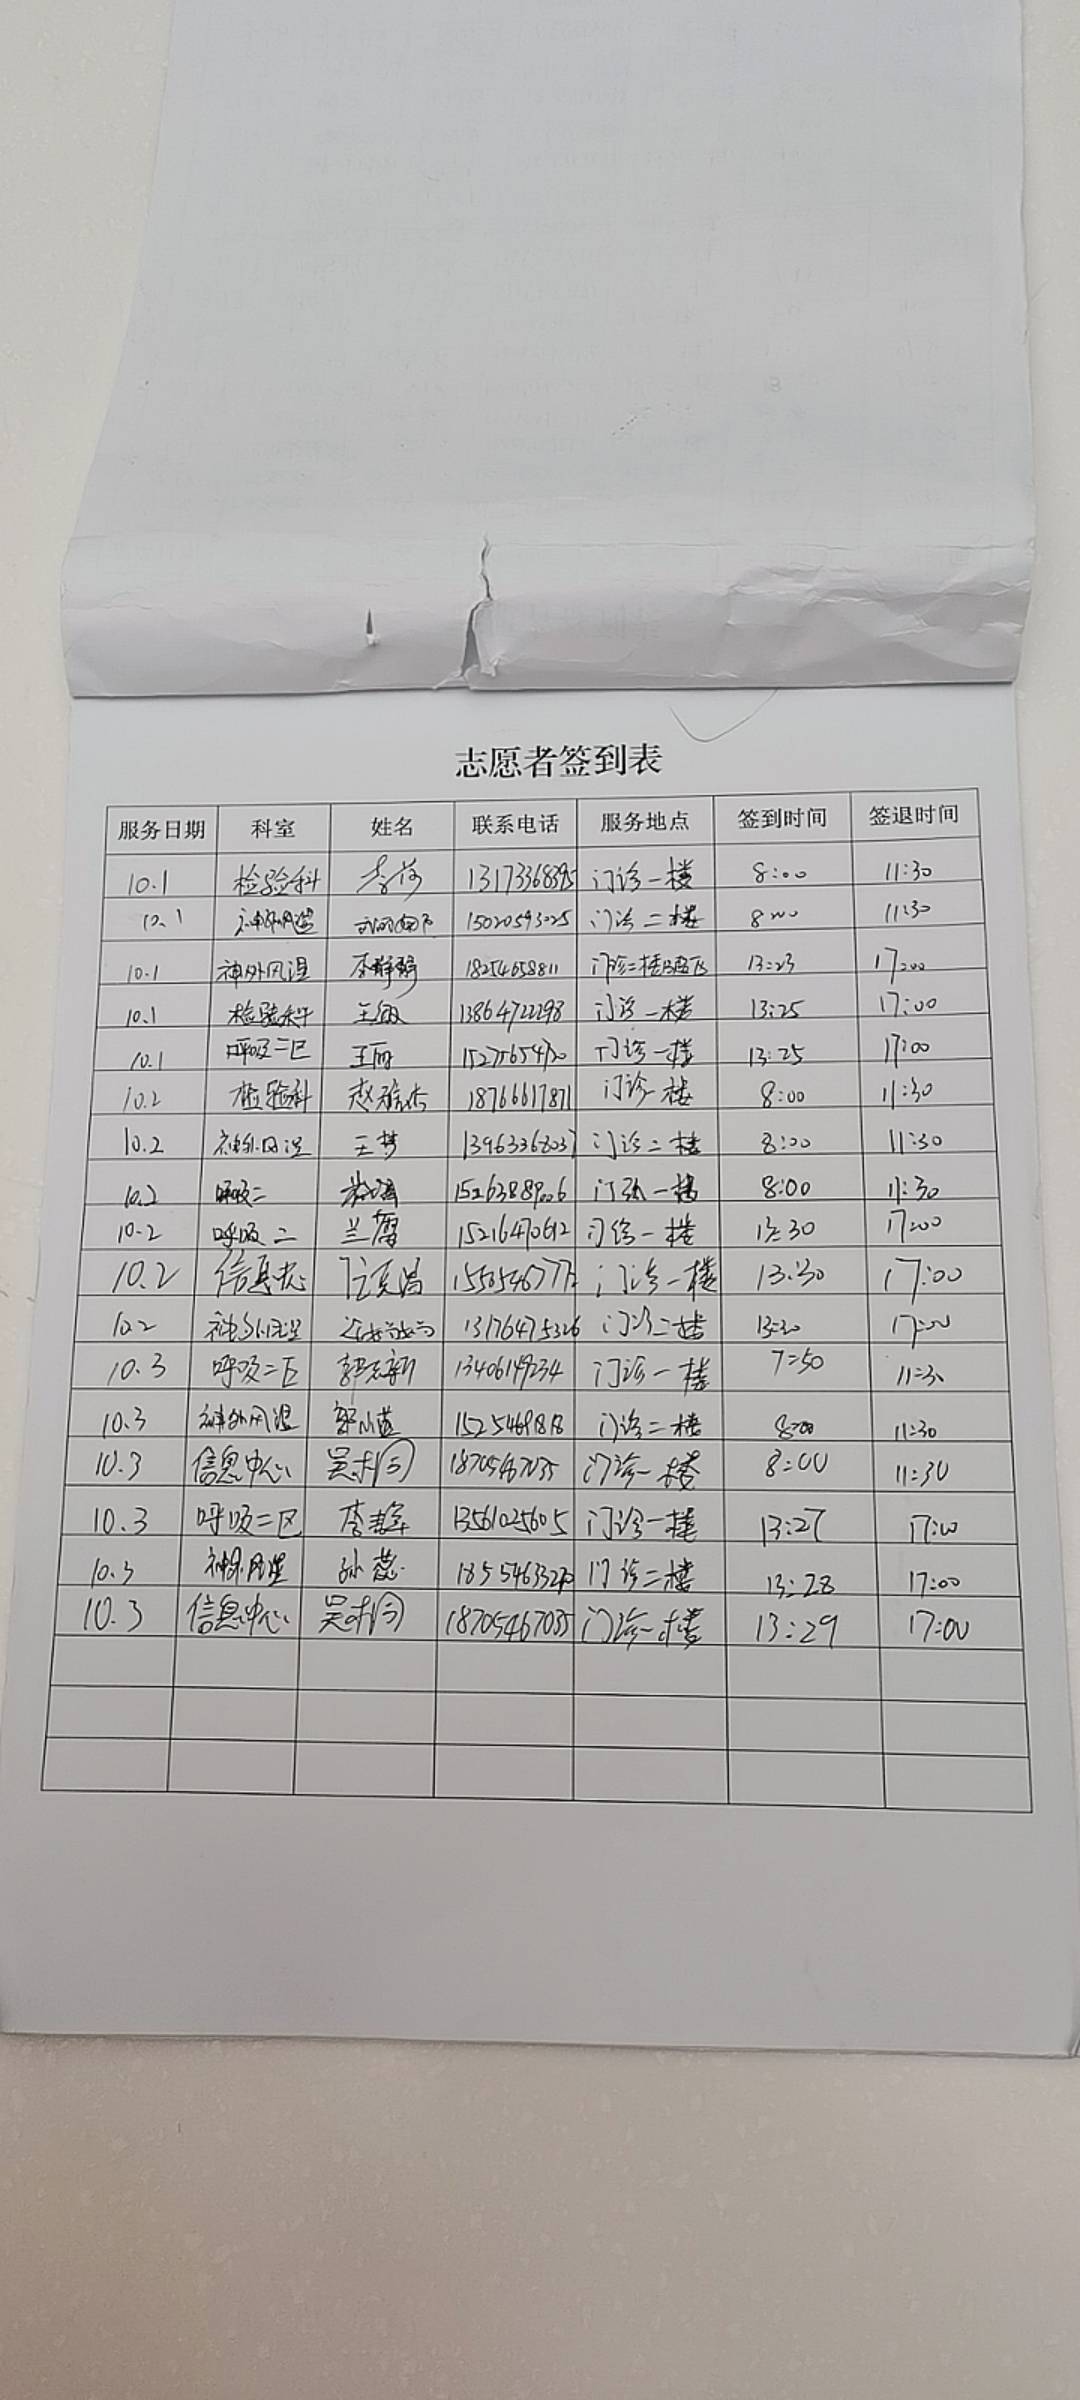 志愿者签到表
服务日期 科室 姓名 联系电话 服务地点 签到时间 签退时间
10.1 检验科 李 13173368395 门诊一楼 8:00 11:30
10.1 神外风湿 15020593025 门诊二楼 8:00 11:30
10.1 神外风湿 李静静 18254658811 门诊二楼 13:23 17:00
10.1 检验科 王敏 13864722298 门诊一楼 13:25 17:00
10.1 呼吸二区 王丽 门诊一楼 13:25 17:00
10.2 检验科 赵 18766617871 门诊一楼 8:00 11:30
10.2 神外风湿 王梦 13963368037 门诊二楼 8:00 11:30
10.2 呼吸二 门诊一楼 8:00 11:30
10.2 呼吸二 兰 15216470612 门诊一楼 13:30 17:00
10.2 门诊一楼 13:30 17:00
10.2 神外风湿 13176475326 门诊二楼 13:30 17:00
10.3 呼吸二区 13406149234 门诊一楼 7:50 11:30
10.3 神外风湿 门诊二楼 8:00 11:30
10.3 信息中心 18705467035 门诊一楼 8:00 11:30
10.3 呼吸二区 李 13561025605 门诊一楼 13:27 17:00
10.3 神外风湿 孙蕊 门诊二楼 13:28 17:00
10.3 信息中心 18705467035 门诊一楼 13:29 17:00